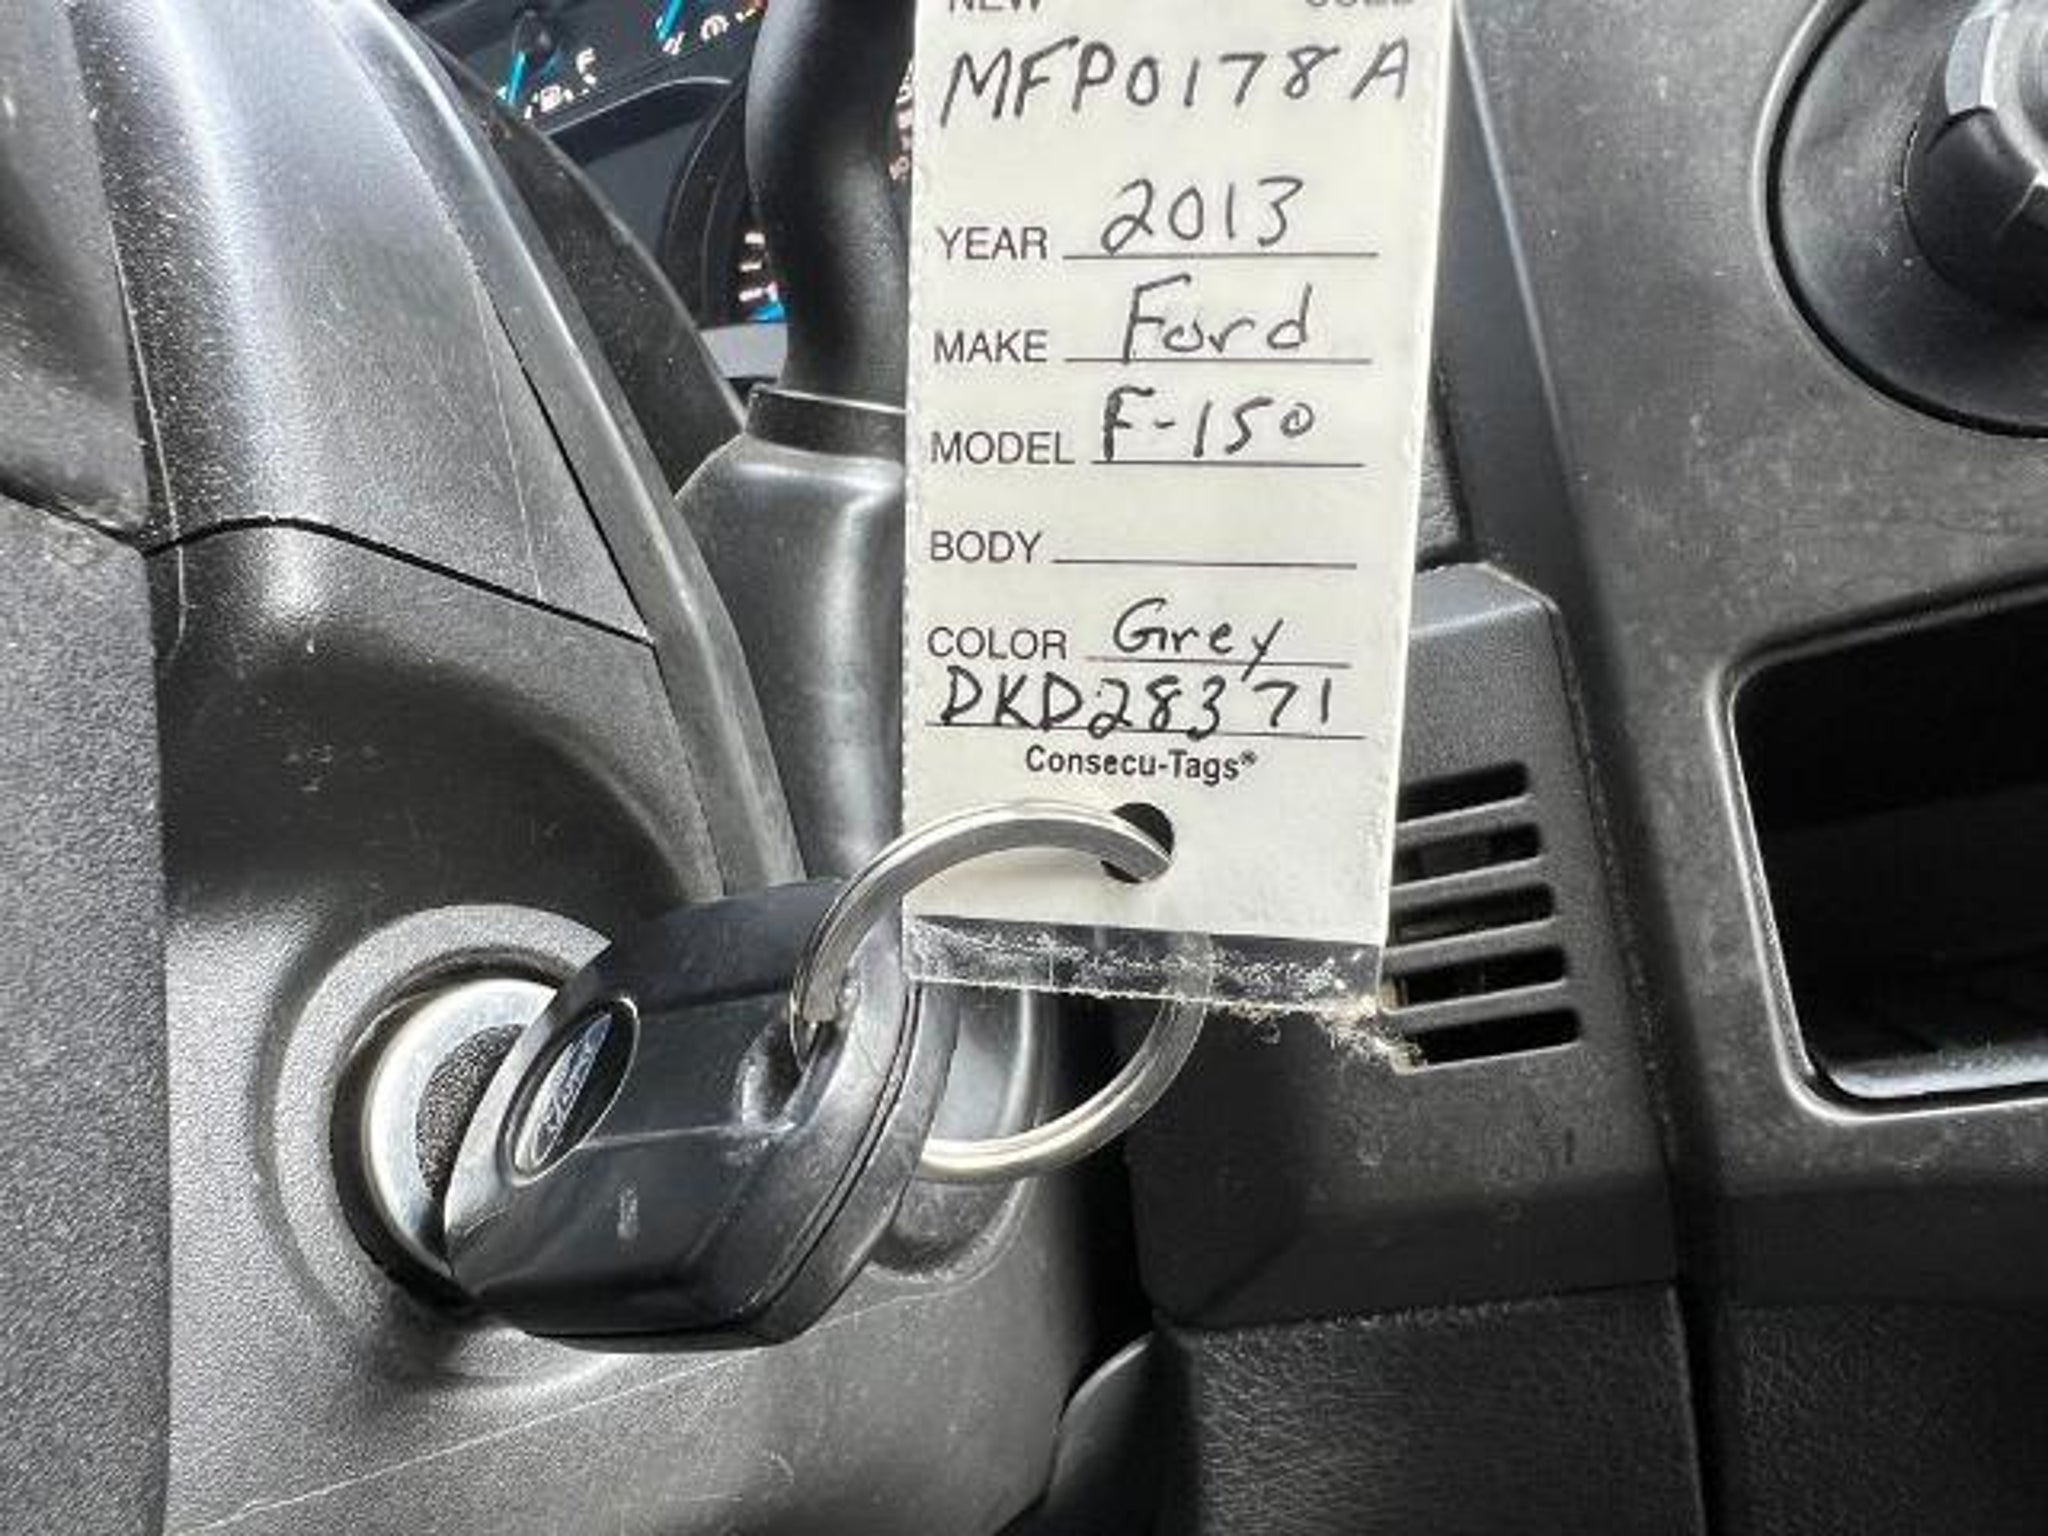 NEW USED
MFP0178A
YEAR 2013
MAKE Ford
MODEL F-150
BODY
COLOR Grey
DKD28371
Consecu-Tags®
F
Ford